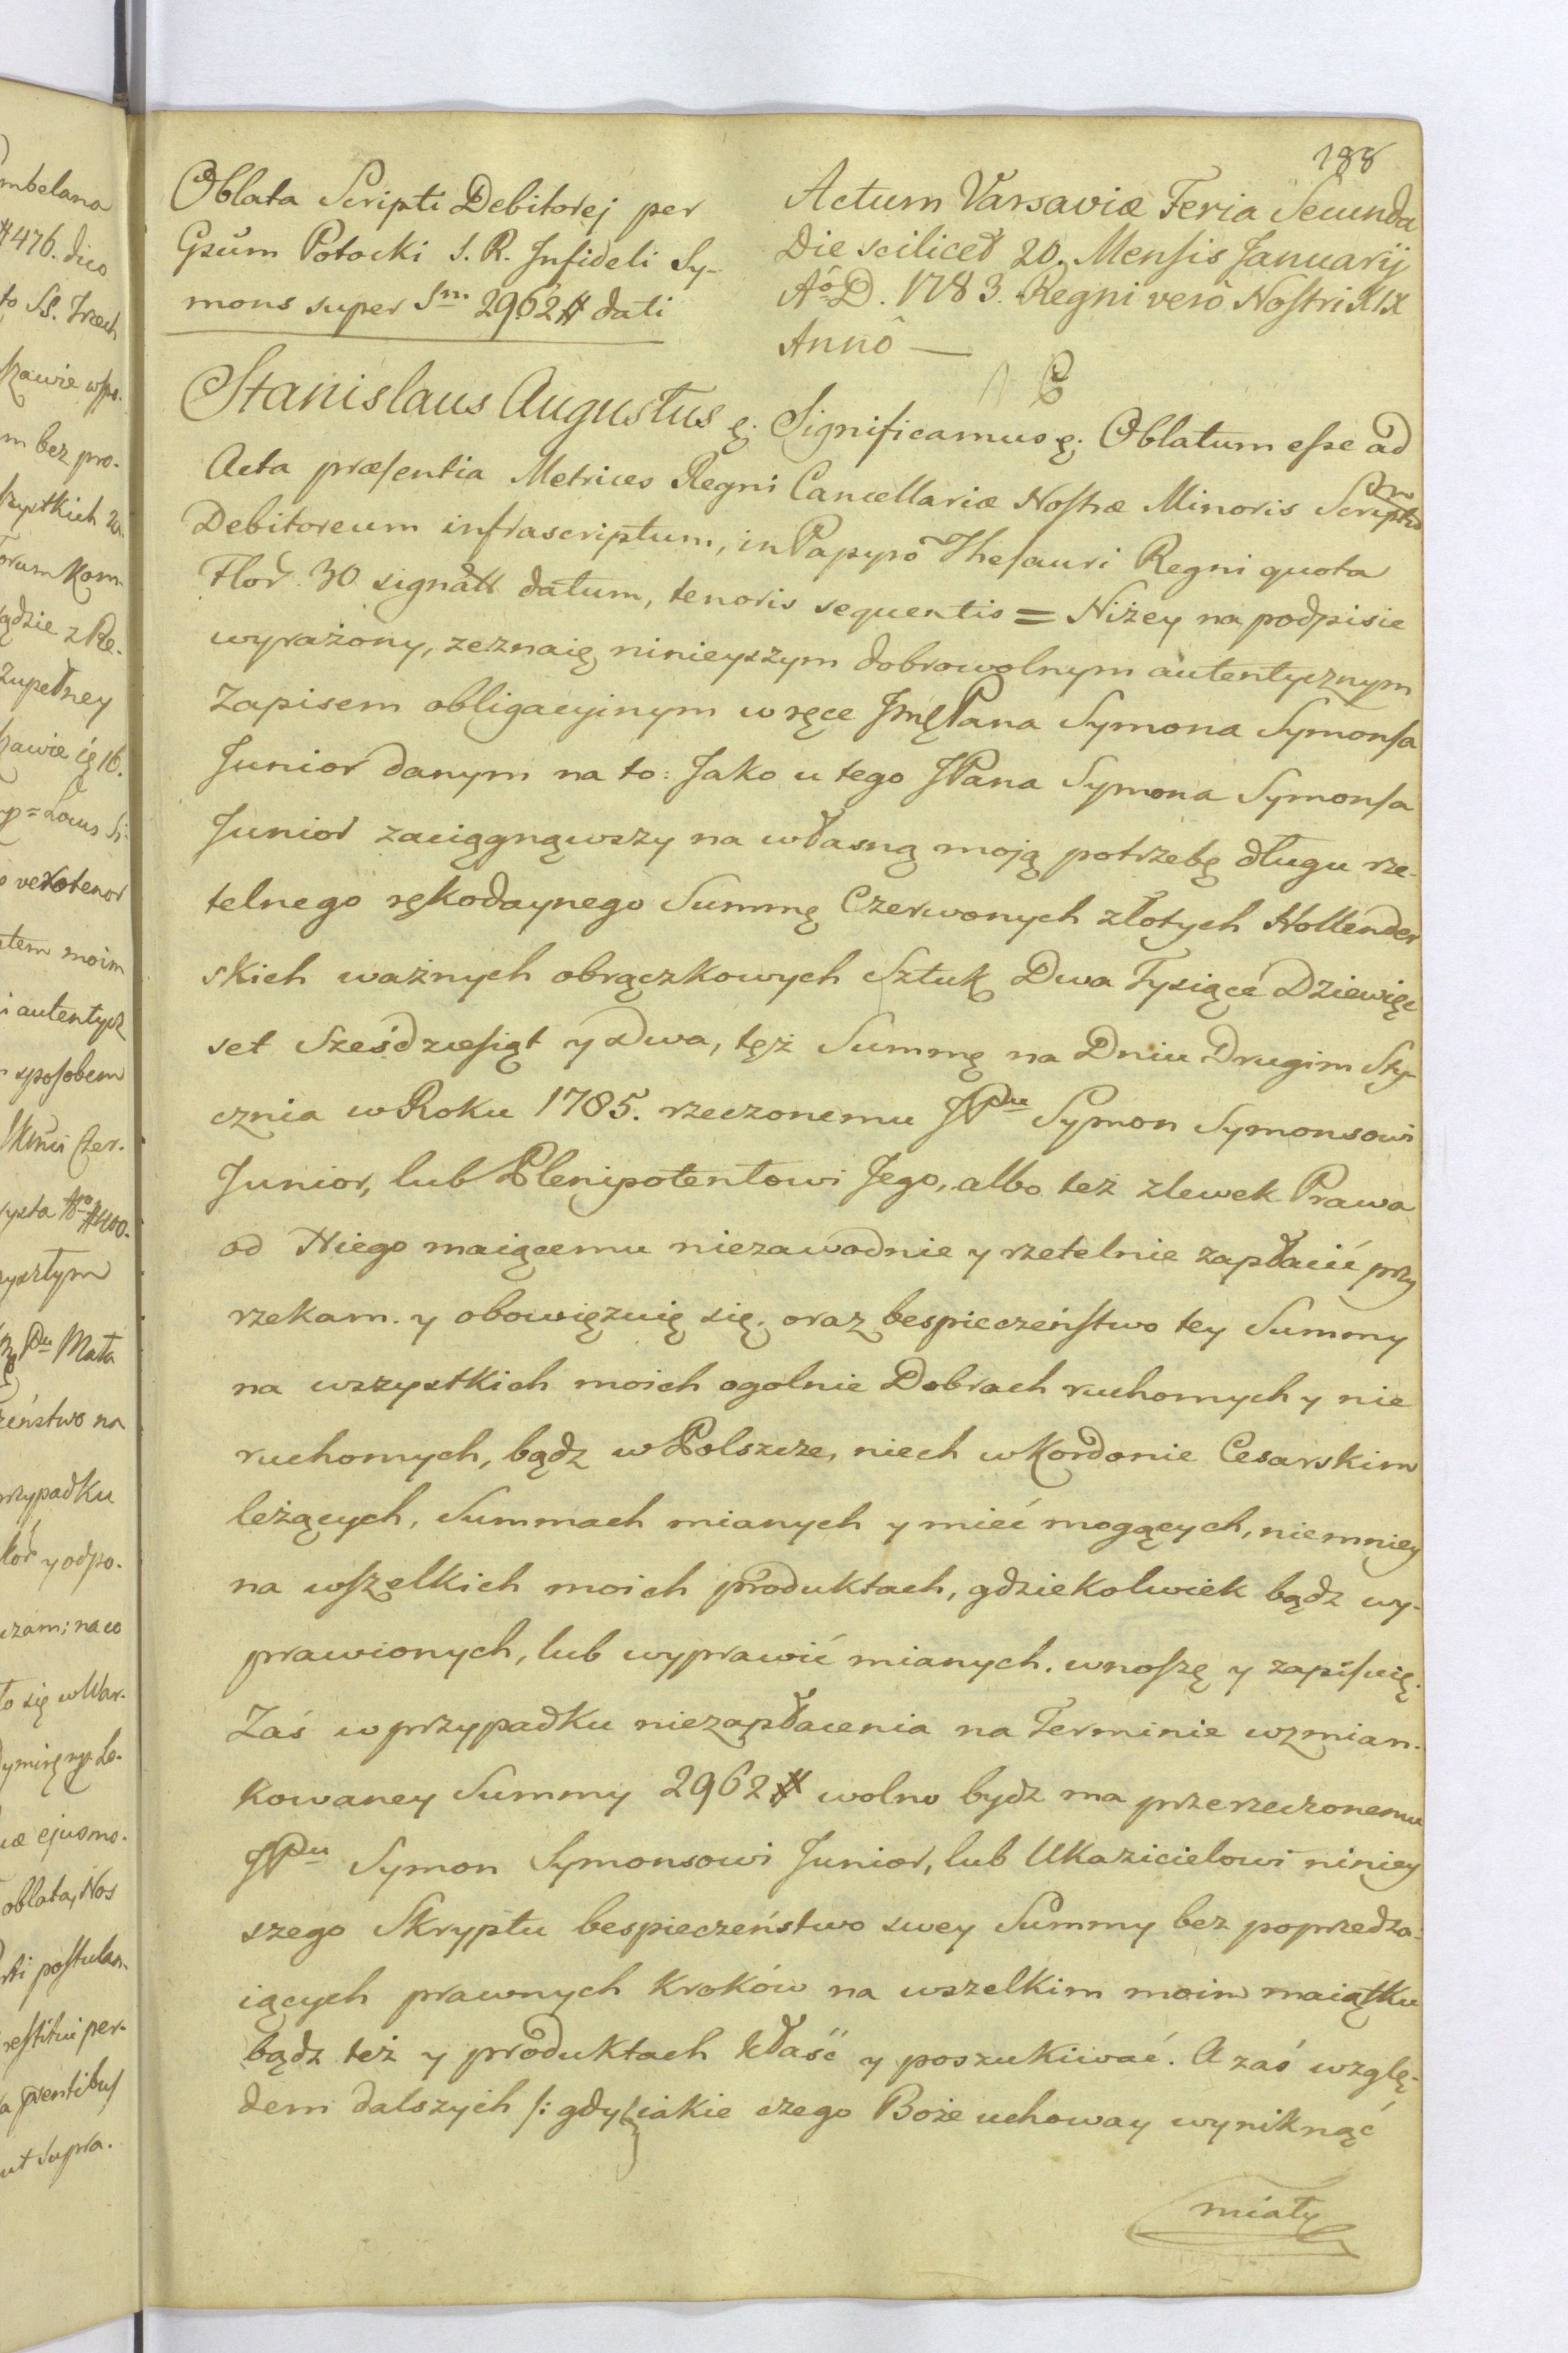 188
Oblata Scripti Debitorej per
Gsum Potocki S. R. Infideli Sy-
mons super Sm 2962 # dati
Actum Varsaviæ Feria Secunda
Die scilicet 20. Mensis Januarij
Aô D. 1783. Regni verò Nostri XIX
Annô —
Stanislaus Augustus &. Significamus &. Oblatum esse ad
Acta præsentia Metrices Regni Cancellariæ Nostræ Minoris Scriptum
Debitoreum infrascriptum, in Papyrô Thesauri Regni quota
Flor. 30 signatt datum, tenoris sequentis = Niżey na podpisie
wyrażony, zeznaię ninieyszym dobrowolnym autentycznym
Zapisem obligacyinym w ręce Jmę Pana Symona Symonsa
Junior danym na to: Jako u tego JPana Symona Symonsa
Junior zaciągnąwszy na własną moią potrzebę długu rze-
telnego rękodaynego Summę Czerwonych złotych Hollender
skich ważnych obrączkowych Sztuk Dwa Tysiące Dziewięć
set Sześdziesiąt y Dwa, tęż Summę na Dniu Drugim Sty-
cznia w Roku 1785. rzeczonemu JPnu Symon Symonsowi
Junior, lub Plenipotentowi Jego, albo też zlewek Prawa
od Niego maiącemu niezawodnie y rzetelnie zapłacić przy
rzekam. y obowięzuię się. oraz bespieczeństwo tey Summy
na wszystkich moich ogolnie Dobrach ruchomych y nie
ruchomych, bądz w Polszcze, niech w Kordonie Cesarskim
leżących, Summach mianych y mieć mogących, niemniey
na wszelkich moich produktach, gdziekolwiek bądz wy-
prawionych, lub wyprawić mianych. wnoszę y zapisuię.
Zaś w przypadku niezapłacenia na Terminie wzmian-
kowaney Summy 2962 # wolno bydz ma przerzeczonemu
JPnu Symon Symonsowi Junior, lub Ukazicielowi niniey
szego Skryptu bespieczeństwo swey Summy bez poprzedza-
iących prawnych kroków na wszelkim moim maiątku
bądz też y produktach kłaść y poszukiwać. A zaś wzglę-
dem dalszych /: gdyby iakie czego Boże uchoway wyniknąć
miały